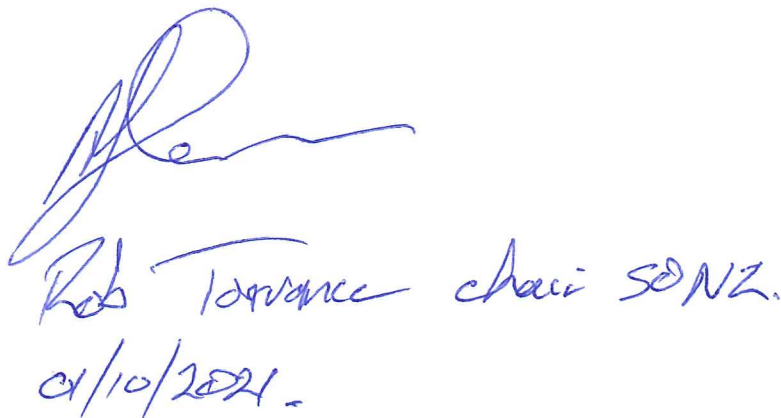 Rob Torrance chair SONZ.
01/10/2021.